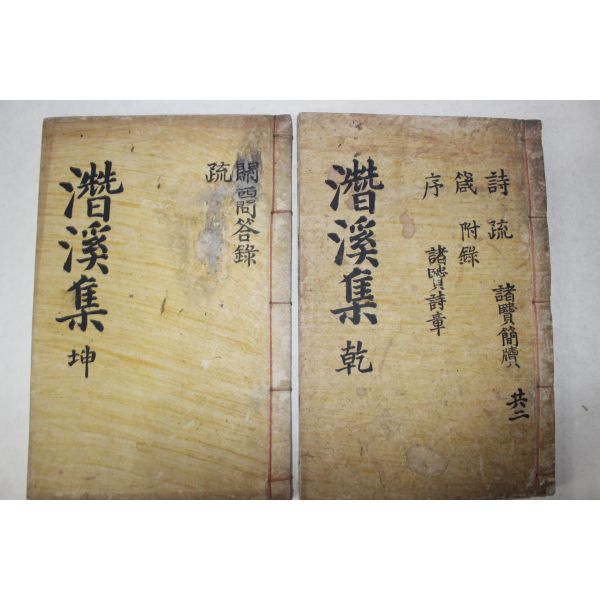 詩 疏 諸賢簡牘 共二
箴 附錄
序 諸賢詩章
潛溪集 乾
關西問答錄
疏
潛溪集 坤